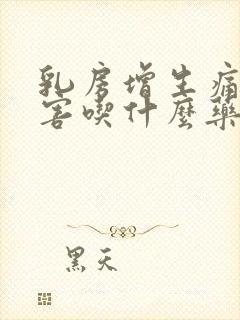 乳房增生痛
害喫什麼藥
黑天